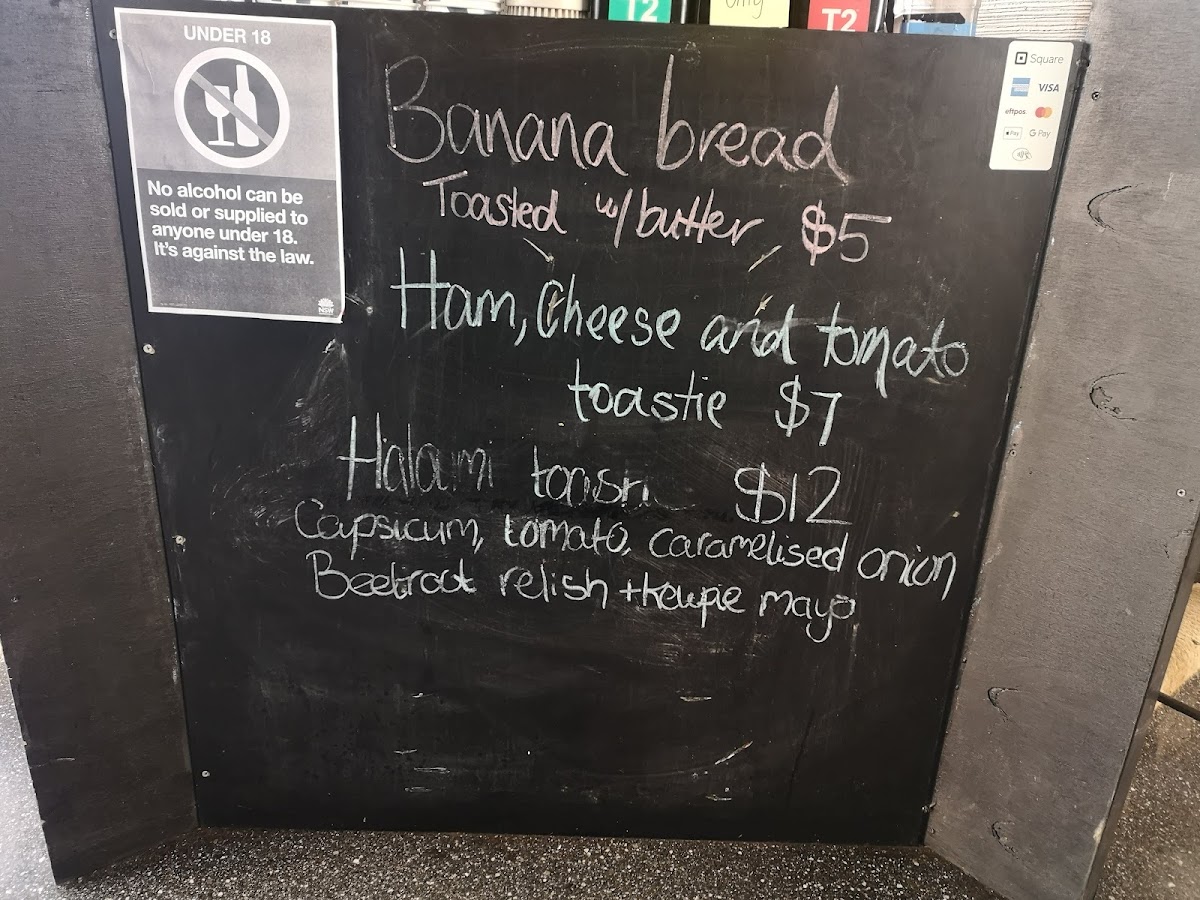 T2
only
T2
UNDER 18
No alcohol can be
sold or supplied to
anyone under 18.
It's against the law.
NSW
Square
VISA
eftpos
Pay
G Pay
Banana bread
Toasted w/ butter $5
Ham, Cheese and tomato
toastie $7
Haloumi $12
Capsicum, tomato, caramelised onion
Beetroot relish + kewpie mayo